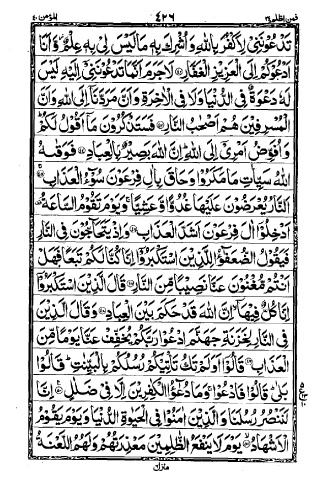 فمن اظلم ٢٤ ٤٢٦ المؤمن ٤٠
تَدْعُوْنَنِيْ لِاَكْفُرَ بِاللهِ وَاُشْرِكَ بِهٖ مَا لَيْسَ لِيْ بِهٖ عِلْمٌ وَّاَنَا
اَدْعُوْكُمْ اِلَى الْعَزِيْزِ الْغَفَّارِ ۝ لَا جَرَمَ اَنَّمَا تَدْعُوْنَنِيْۤ اِلَيْهِ لَيْسَ
لَهٗ دَعْوَةٌ فِي الدُّنْيَا وَلَا فِي الْاٰخِرَةِ وَاَنَّ مَرَدَّنَاۤ اِلَى اللهِ وَاَنَّ
الْمُسْرِفِيْنَ هُمْ اَصْحٰبُ النَّارِ ۝ فَسَتَذْكُرُوْنَ مَاۤ اَقُوْلُ لَكُمْ
وَاُفَوِّضُ اَمْرِيْۤ اِلَى اللهِ اِنَّ اللهَ بَصِيْرٌۢ بِالْعِبَادِ ۝ فَوَقٰىهُ
اللهُ سَيِّاٰتِ مَا مَكَرُوْا وَحَاقَ بِاٰلِ فِرْعَوْنَ سُوْٓءُ الْعَذَابِ ۝
اَلنَّارُ يُعْرَضُوْنَ عَلَيْهَا غُدُوًّا وَّعَشِيًّا وَيَوْمَ تَقُوْمُ السَّاعَةُ
اَدْخِلُوْۤا اٰلَ فِرْعَوْنَ اَشَدَّ الْعَذَابِ ۝ وَاِذْ يَتَحَآجُّوْنَ فِي النَّارِ
فَيَقُوْلُ الضُّعَفٰٓؤُا لِلَّذِيْنَ اسْتَكْبَرُوْۤا اِنَّا كُنَّا لَكُمْ تَبَعًا فَهَلْ
اَنْتُمْ مُّغْنُوْنَ عَنَّا نَصِيْبًا مِّنَ النَّارِ ۝ قَالَ الَّذِيْنَ اسْتَكْبَرُوْۤا
اِنَّا كُلٌّ فِيْهَاۤ اِنَّ اللهَ قَدْ حَكَمَ بَيْنَ الْعِبَادِ ۝ وَقَالَ الَّذِيْنَ
فِي النَّارِ لِخَزَنَةِ جَهَنَّمَ ادْعُوْا رَبَّكُمْ يُخَفِّفْ عَنَّا يَوْمًا مِّنَ
الْعَذَابِ ۝ قَالُوْۤا اَوَلَمْ تَكُ تَاْتِيْكُمْ رُسُلُكُمْ بِالْبَيِّنٰتِ قَالُوْا
بَلٰى قَالُوْا فَادْعُوْا وَمَا دُعٰٓؤُا الْكٰفِرِيْنَ اِلَّا فِيْ ضَلٰلٍ ۝ اِنَّا
لَنَنْصُرُ رُسُلَنَا وَالَّذِيْنَ اٰمَنُوْا فِي الْحَيٰوةِ الدُّنْيَا وَيَوْمَ يَقُوْمُ
الْاَشْهَادُ ۝ يَوْمَ لَا يَنْفَعُ الظّٰلِمِيْنَ مَعْذِرَتُهُمْ وَلَهُمُ اللَّعْنَةُ